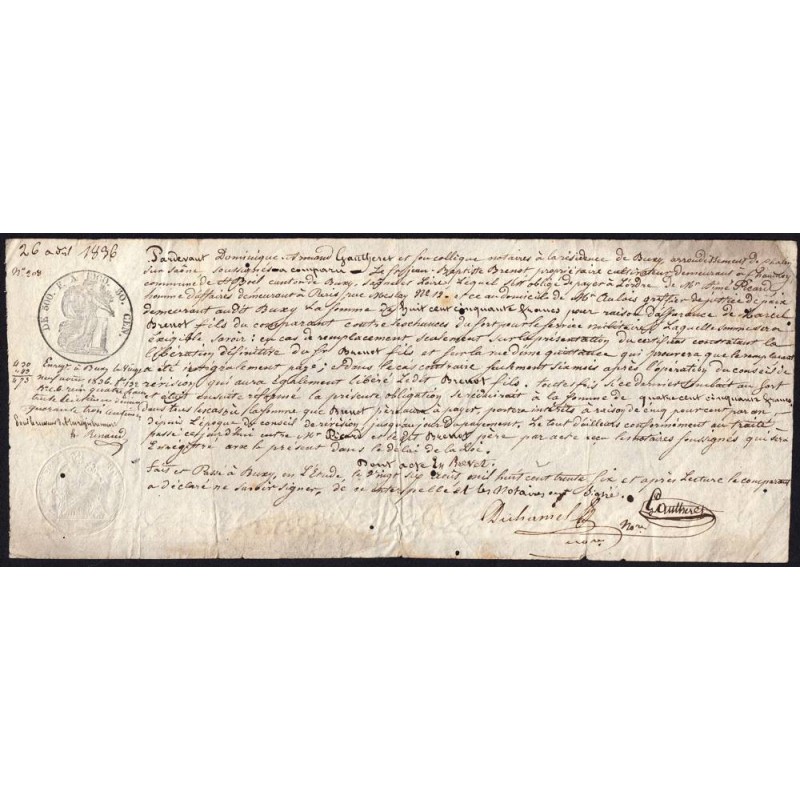 26 août 1836
N° 208
DE 500. A 1000. 50. CEN.
Pardevant Dominique Armand Gautheret et son collègue notaires à la résidence de Buxy, arrondissement de Chalon
sur Saône, soussignés a comparu Le sr Jean Baptiste Brenot propriétaire cultivateur demeurant à
commune de St Boil canton de Buxy, Lequel s'est obligé de payer à l'ordre de Mr Aimé Picard
homme d'affaires demeurant à Paris rue Meslay N° 12. et ce au domicile de Mr greffier de justice de paix
demeurant audit Buxy La somme de huit cent cinquante francs pour raison d'assurance de
Brenot fils du comparant contre les chances du sort pour le service militaire, Laquelle somme sera
exigible, savoir: en cas de remplacement seulement sur la présentation du certificat constatant la
libération définitive du sr Brenot fils et sur la vue d'une quittance qui prouvera que le remplaçant
a été intégralement payé; dans le cas contraire six mois après l'opération du conseil de
révision qui aura également libéré Ledit Brenot fils. toutefois si ce dernier tombait au sort
et était ensuite réformé la présente obligation se réduirait à la somme de quatre cent cinquante francs
dans tous les cas la somme que Brenot père aura à payer, portera intérêts à raison de cinq pour cent par an
depuis l'époque du conseil de révision jusqu'au jour du payement, le tout d'ailleurs conformément au traité
passé ce jourd'hui entre Mr Picard et ledit Brenot père par acte reçu les notaires soussignés qui sera
Enregistré avec le présent dans le délai de la loi.
Dont acte En Brevet.
Fait et Passé à Buxy, en L'Etude, le vingt six août mil huit cent trente six et après Lecture le comparant
a déclaré ne savoir signer, de ce interpellé et les Notaires ont signé.
Enregt à Buxy le vingt
neuf août 1836 f° 132
quarante trois centimes
Renaud
Duhamel
Gautheret
Nore